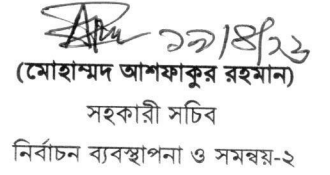 ১৯/৪/২৬
(মোহাম্মদ আশফাকুর রহমান)
সহকারী সচিব
নির্বাচন ব্যবস্থাপনা ও সমন্বয়-২